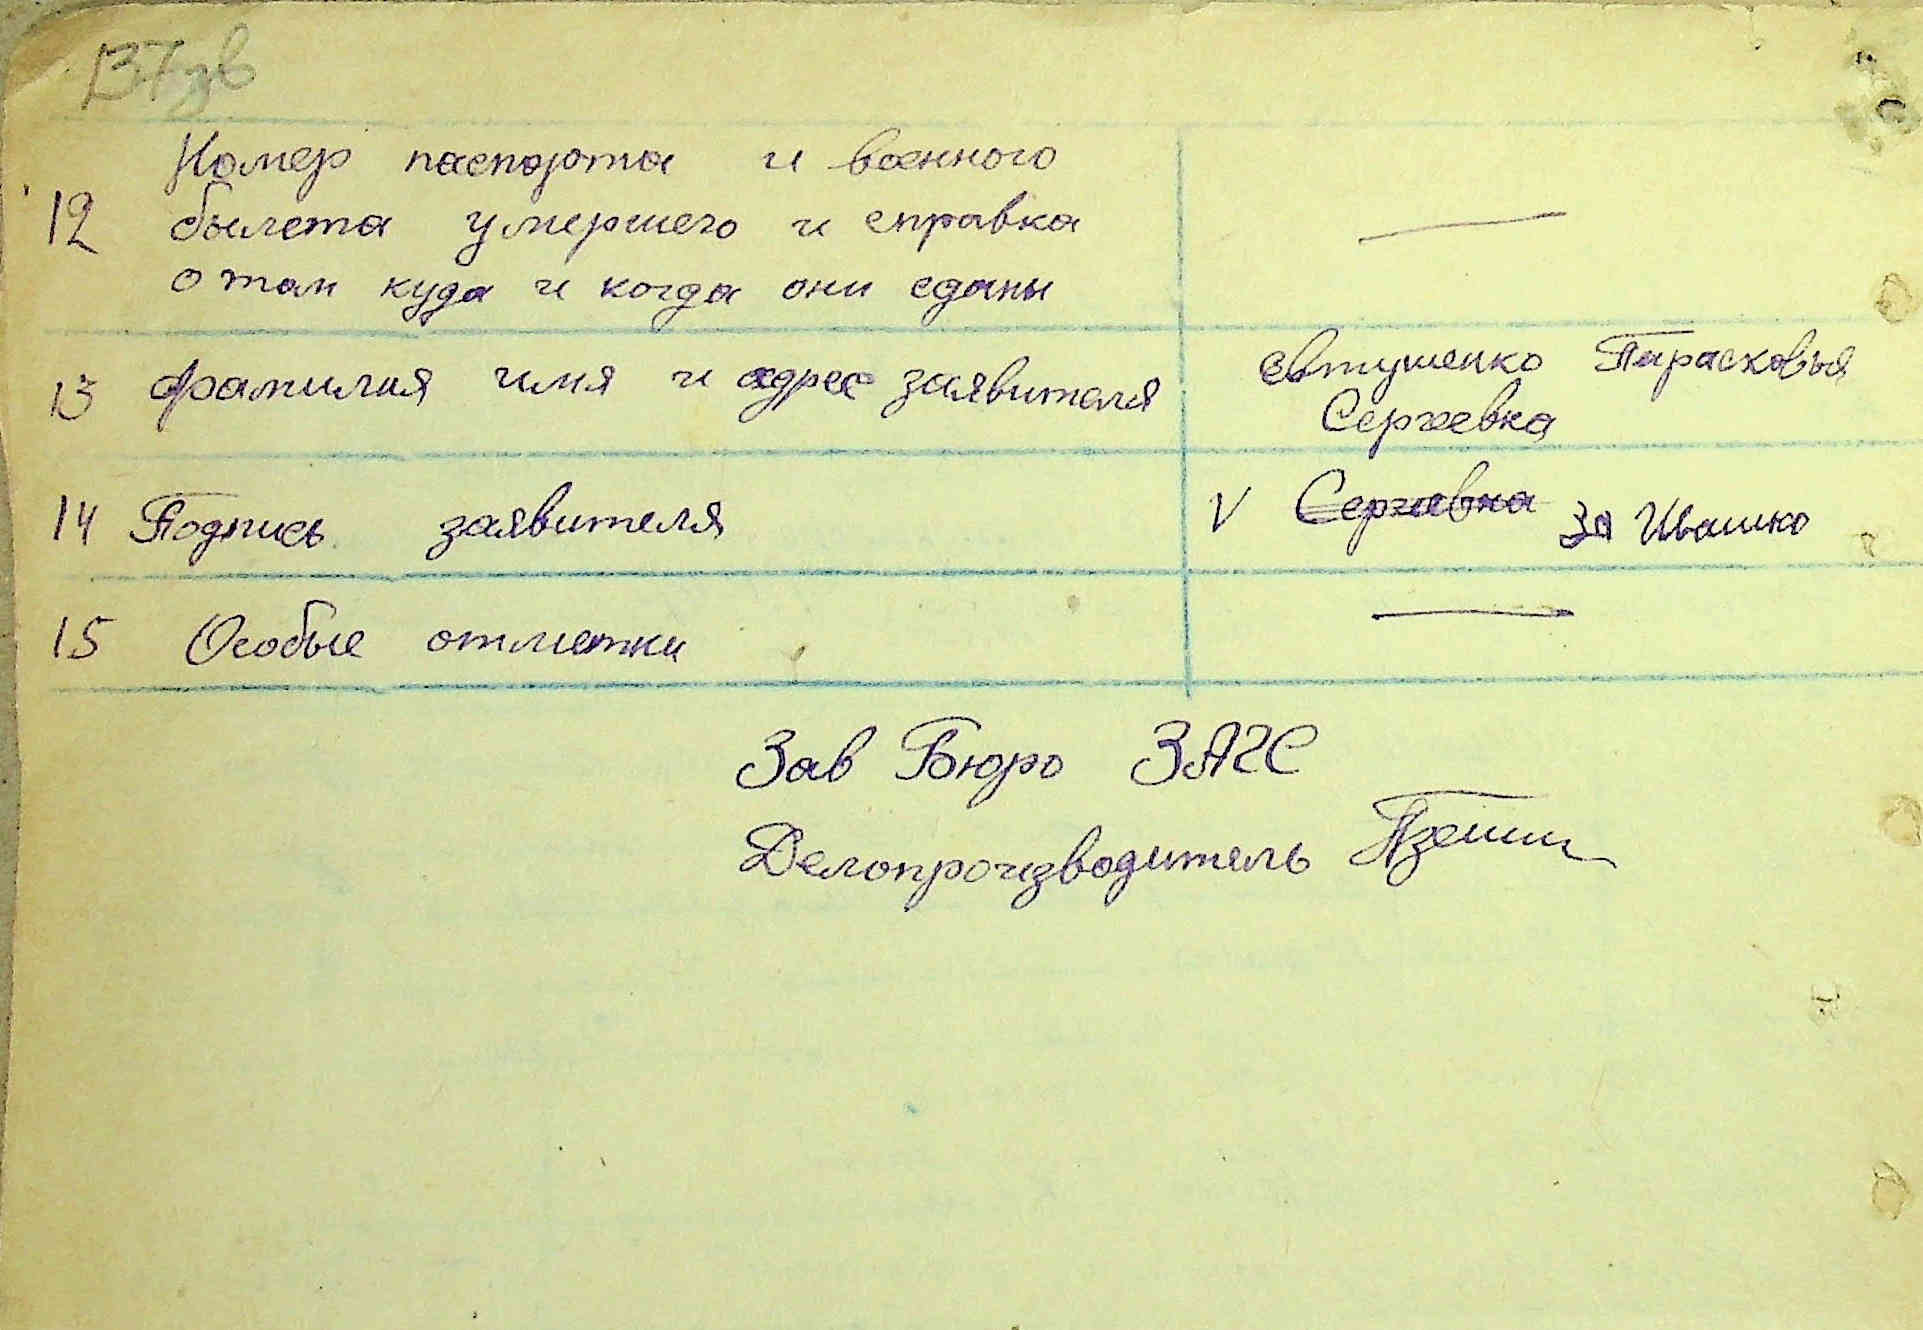 137зв
Номер паспорта и военного
12 былета умершего и справка
о том куда и когда они сданы
13 Фамилия имя и адрес заявителя
Евтушенко Парасковья
Сергеевка
14 Подпись заявителя V Сергеевна за Ивашко
15 Особые отметки
Зав Бюро ЗАГС
Делопроизводитель